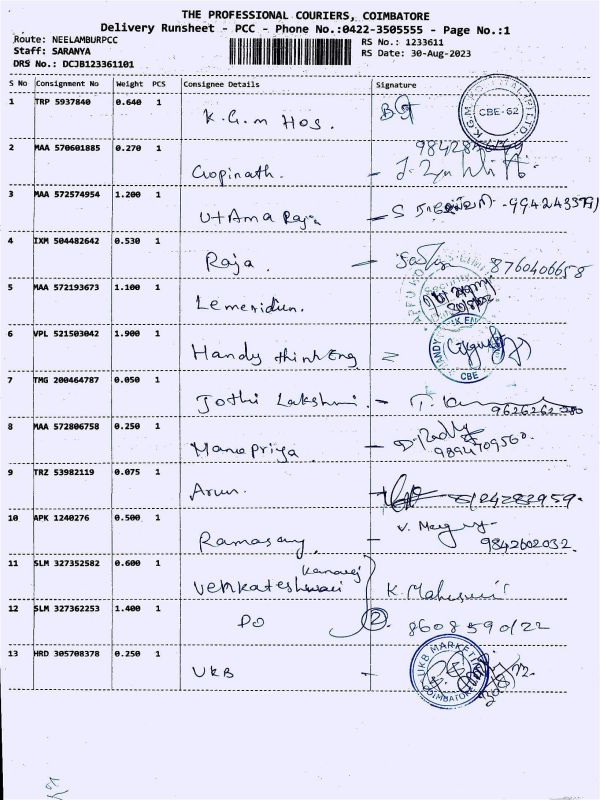 THE PROFESSIONAL COURIERS, COIMBATORE
Delivery Runsheet - PCC - Phone No.:0422-3505555 - Page No.:1
Route: NEELAMBURPCC RS No.: 1233611
Staff: SARANYA RS Date: 30-Aug-2023
DRS No.: DCJB123361101
S No Consignment No Weight PCS Consignee Details Signature
1 TRP 5937840 0.640 1 K.G.m Hos. CBE-62
2 MAA 570601885 0.270 1 Gopinath.
3 MAA 572574954 1.200 1 Uttama Raja
4 IXM 504482642 0.530 1 Raja. 8760406658
5 MAA 572193673 1.100 1 Lemeridun.
6 VPL 521503042 1.900 1 Handy think Eng CBE
7 TMG 200464787 0.050 1 Jothi Lakshmi.
8 MAA 572806758 0.250 1 Manopriya 9894709560.
9 TRZ 53982119 0.075 1 Arun.
10 APK 1240276 0.500 1 Ramasamy. 9842602032.
11 SLM 327352582 0.600 1 Venkateshwari
12 SLM 327362253 1.400 1 Do 2 8608590122
13 HRD 305708378 0.250 1 UKB UKB MARKETING COIMBATORE